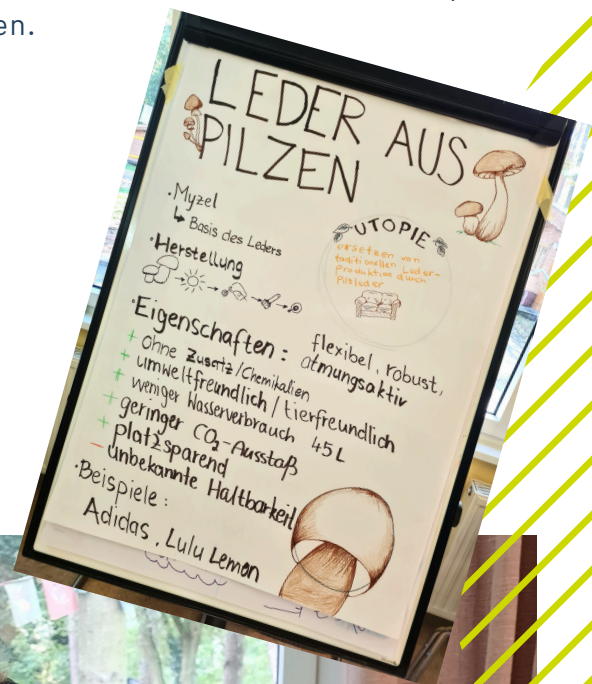 en.
LEDER AUS
PILZEN
· Myzel
↳ Basis des Leders
· Herstellung
UTOPIE
ersetzen von
traditionellen Leder-
Produktion durch
Pilzleder
· Eigenschaften: flexibel, robust,
atmungsaktiv
+ ohne Zusatz/Chemikalien
+ umweltfreundlich/tierfreundlich
+ weniger Wasserverbrauch 45L
+ geringer CO₂-Ausstoß
+ platzsparend
- unbekannte Haltbarkeit
· Beispiele:
Adidas, Lulu Lemon